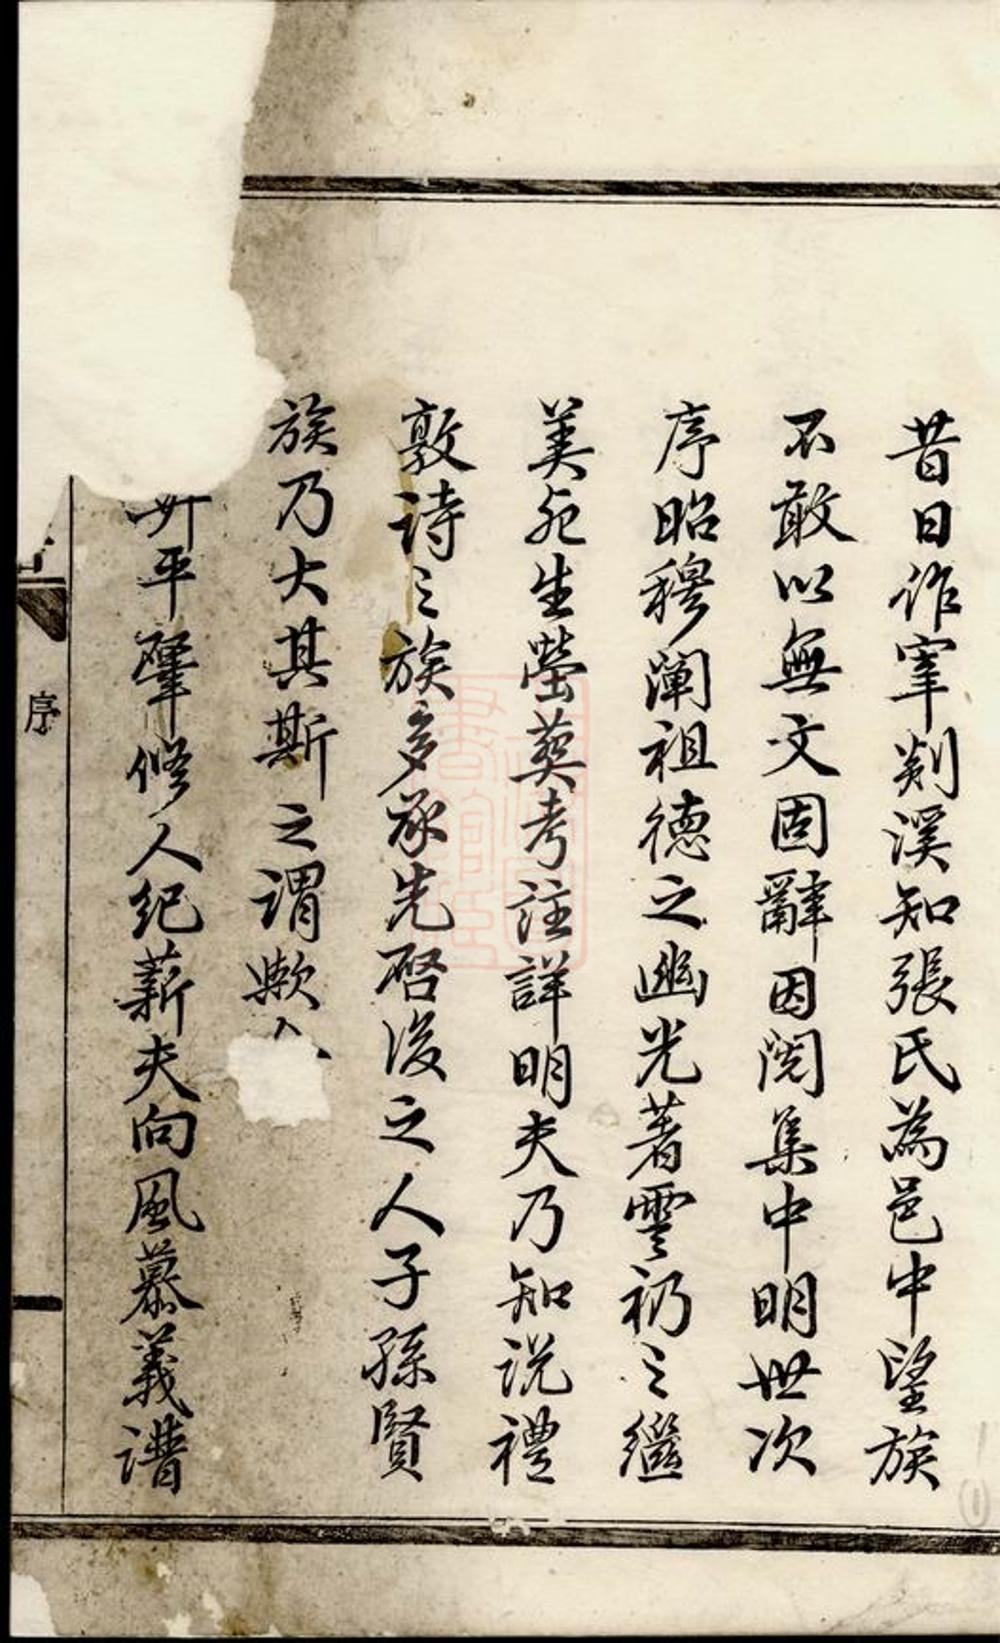 昔日作宰剡溪知張氏為邑中望族
不敢以無文固辭因閱集中明世次
序昭穆闡祖德之幽光著雲礽之繼
美死生塋葵考註詳明夫乃知說禮
敦詩之族多承先啓後之人子孫賢
族乃大其斯之謂歟
平肇修人紀薪夫向風慕義譜
序